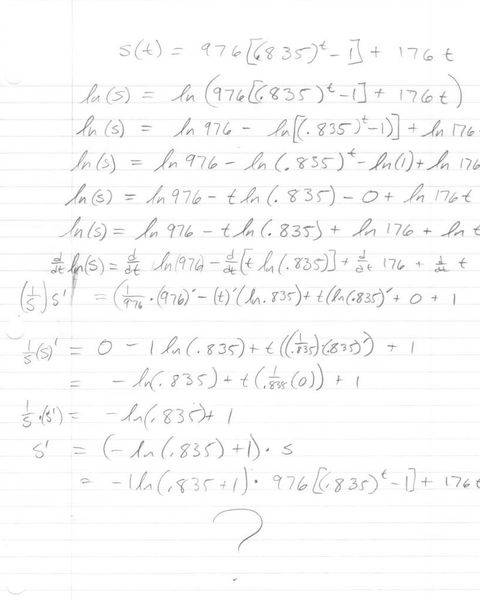 s(t) = 976[(.835)^t - 1] + 176 t
ln(s) = ln(976[(.835)^t - 1] + 176t)
ln(s) = ln 976 - ln[(.835)^t - 1)] + ln 176
ln(s) = ln 976 - ln(.835)^t - ln(1) + ln 176
ln(s) = ln 976 - t ln(.835) - 0 + ln 176 t
ln(s) = ln 976 - t ln(.835) + ln 176 + ln t
d/dt ln(s) = d/dt ln(976) - d/dt [t ln(.835)] + d/dt 176 + d/dt t
(1/s) s' = (1/976 · (976)' - (t)'(ln .835) + t(ln(.835)' + 0 + 1
1/s (s)' = 0 - 1 ln(.835) + t((1/.835)(.835)') + 1
= - ln(.835) + t(1/.835 (0)) + 1
1/s · (s') = - ln(.835) + 1
s' = (- ln(.835) + 1) · s
= - 1 ln(.835 + 1) · 976[(.835)^t - 1] + 176 t
?